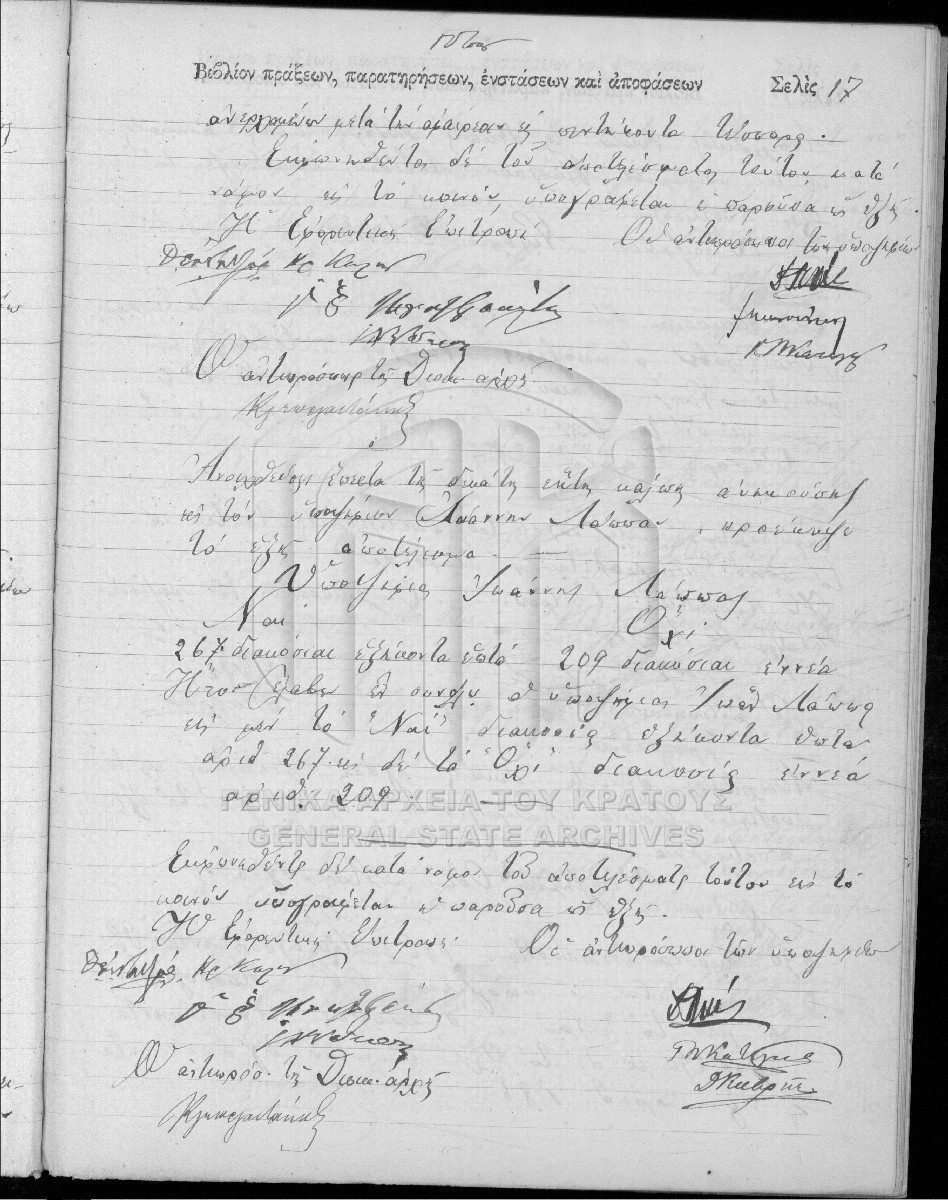 Βιβλίον πράξεων, παρατηρήσεων, ἐνστάσεων καὶ ἀποφάσεων Σελὶς 17
ἀνερχομένων μετὰ τὴν ἀφαίρεσιν εἰς πεντήκοντα τέσσαρα.
Ἐκφωνηθέντος δὲ τοῦ ἀποτελέσματος τούτου κατὰ
νόμον εἰς τὸ κοινόν, ὑπογράφεται ἡ παροῦσα ὡς ἑξῆς.
Ἡ Ἐφορευτικὴ Ἐπιτροπὴ Οἱ ἀντιπρόσωποι τῶν ὑποψηφίων
Ὁ ἀντιπρόσωπος τῆς Δικαστ. ἀρχῆς
Ἀνοιχθείσης ἔπειτα τῆς δεκάτης ἕκτης κάλπης ἀνηκούσης
εἰς τὸν ὑποψήφιον Ἰωάννην Λάππαν, προέκυψε
τὸ ἑξῆς ἀποτέλεσμα.
Ὑποψήφιος Ἰωάννης Λάππας
Ναὶ Ὄχι
267 διακόσιαι ἑξήκοντα ἑπτά 209 διακόσιαι ἐννέα
Ἤτοι ἔλαβεν ἐν συνόλῳ ὁ ὑποψήφιος Ἰωάν Λάππας
εἰς μὲν τὸ Ναὶ διακοσίας ἑξήκοντα ἑπτὰ
ἀριθ 267 εἰς δὲ τὸ "Ὄχι" διακοσίας ἐννέα
ἀριθ. 209.
ΓΕΝΙΚΑ ΑΡΧΕΙΑ ΤΟΥ ΚΡΑΤΟΥΣ
GENERAL STATE ARCHIVES
Ἐκφωνηθέντος δὲ κατὰ νόμον τοῦ ἀποτελέσματος τούτου εἰς τὸ
κοινόν ὑπογράφεται ἡ παροῦσα ὡς ἑξῆς.
Ἡ Ἐφορευτικὴ Ἐπιτροπή Οἱ ἀντιπρόσωποι τῶν ὑποψηφίων
Ὁ ἀντιπρόσ. τῆς Δικαστ. ἀρχῆς